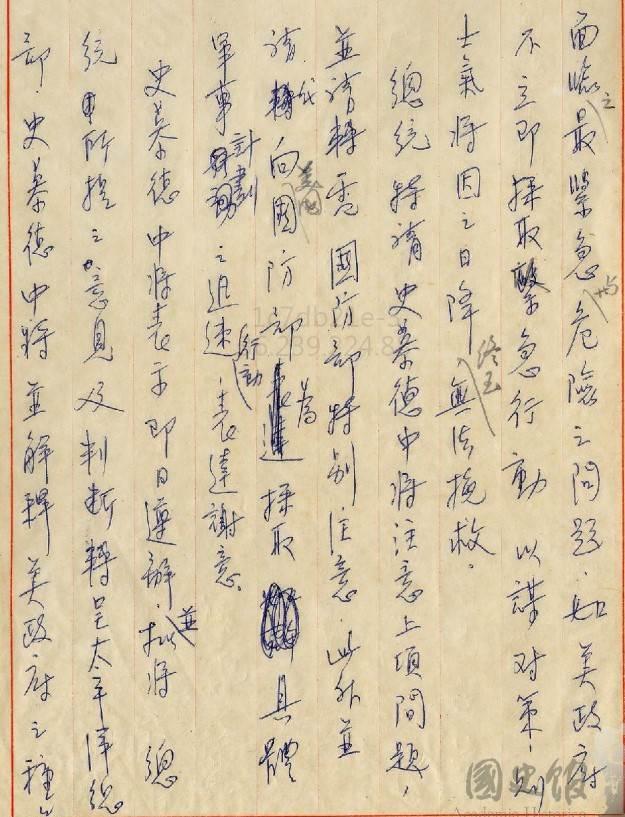 面臨之最緊急與危險之問題.如美政府
不立即採取緊急行動以謀對策,則
士氣將因之日降,終至無法挽救.
總統特請史慕德中將注意上項問題,
並請轉電國防部特別注意.此外並
請代向美國國防部為採取具體
軍事計劃之迅速行動,表達謝意.
史慕德中將表示即日遵辦.並批將總
統所提之意見及判斷轉呈太平洋總
部.史慕德中將並解釋美政府之種
國史館
Academia Historica